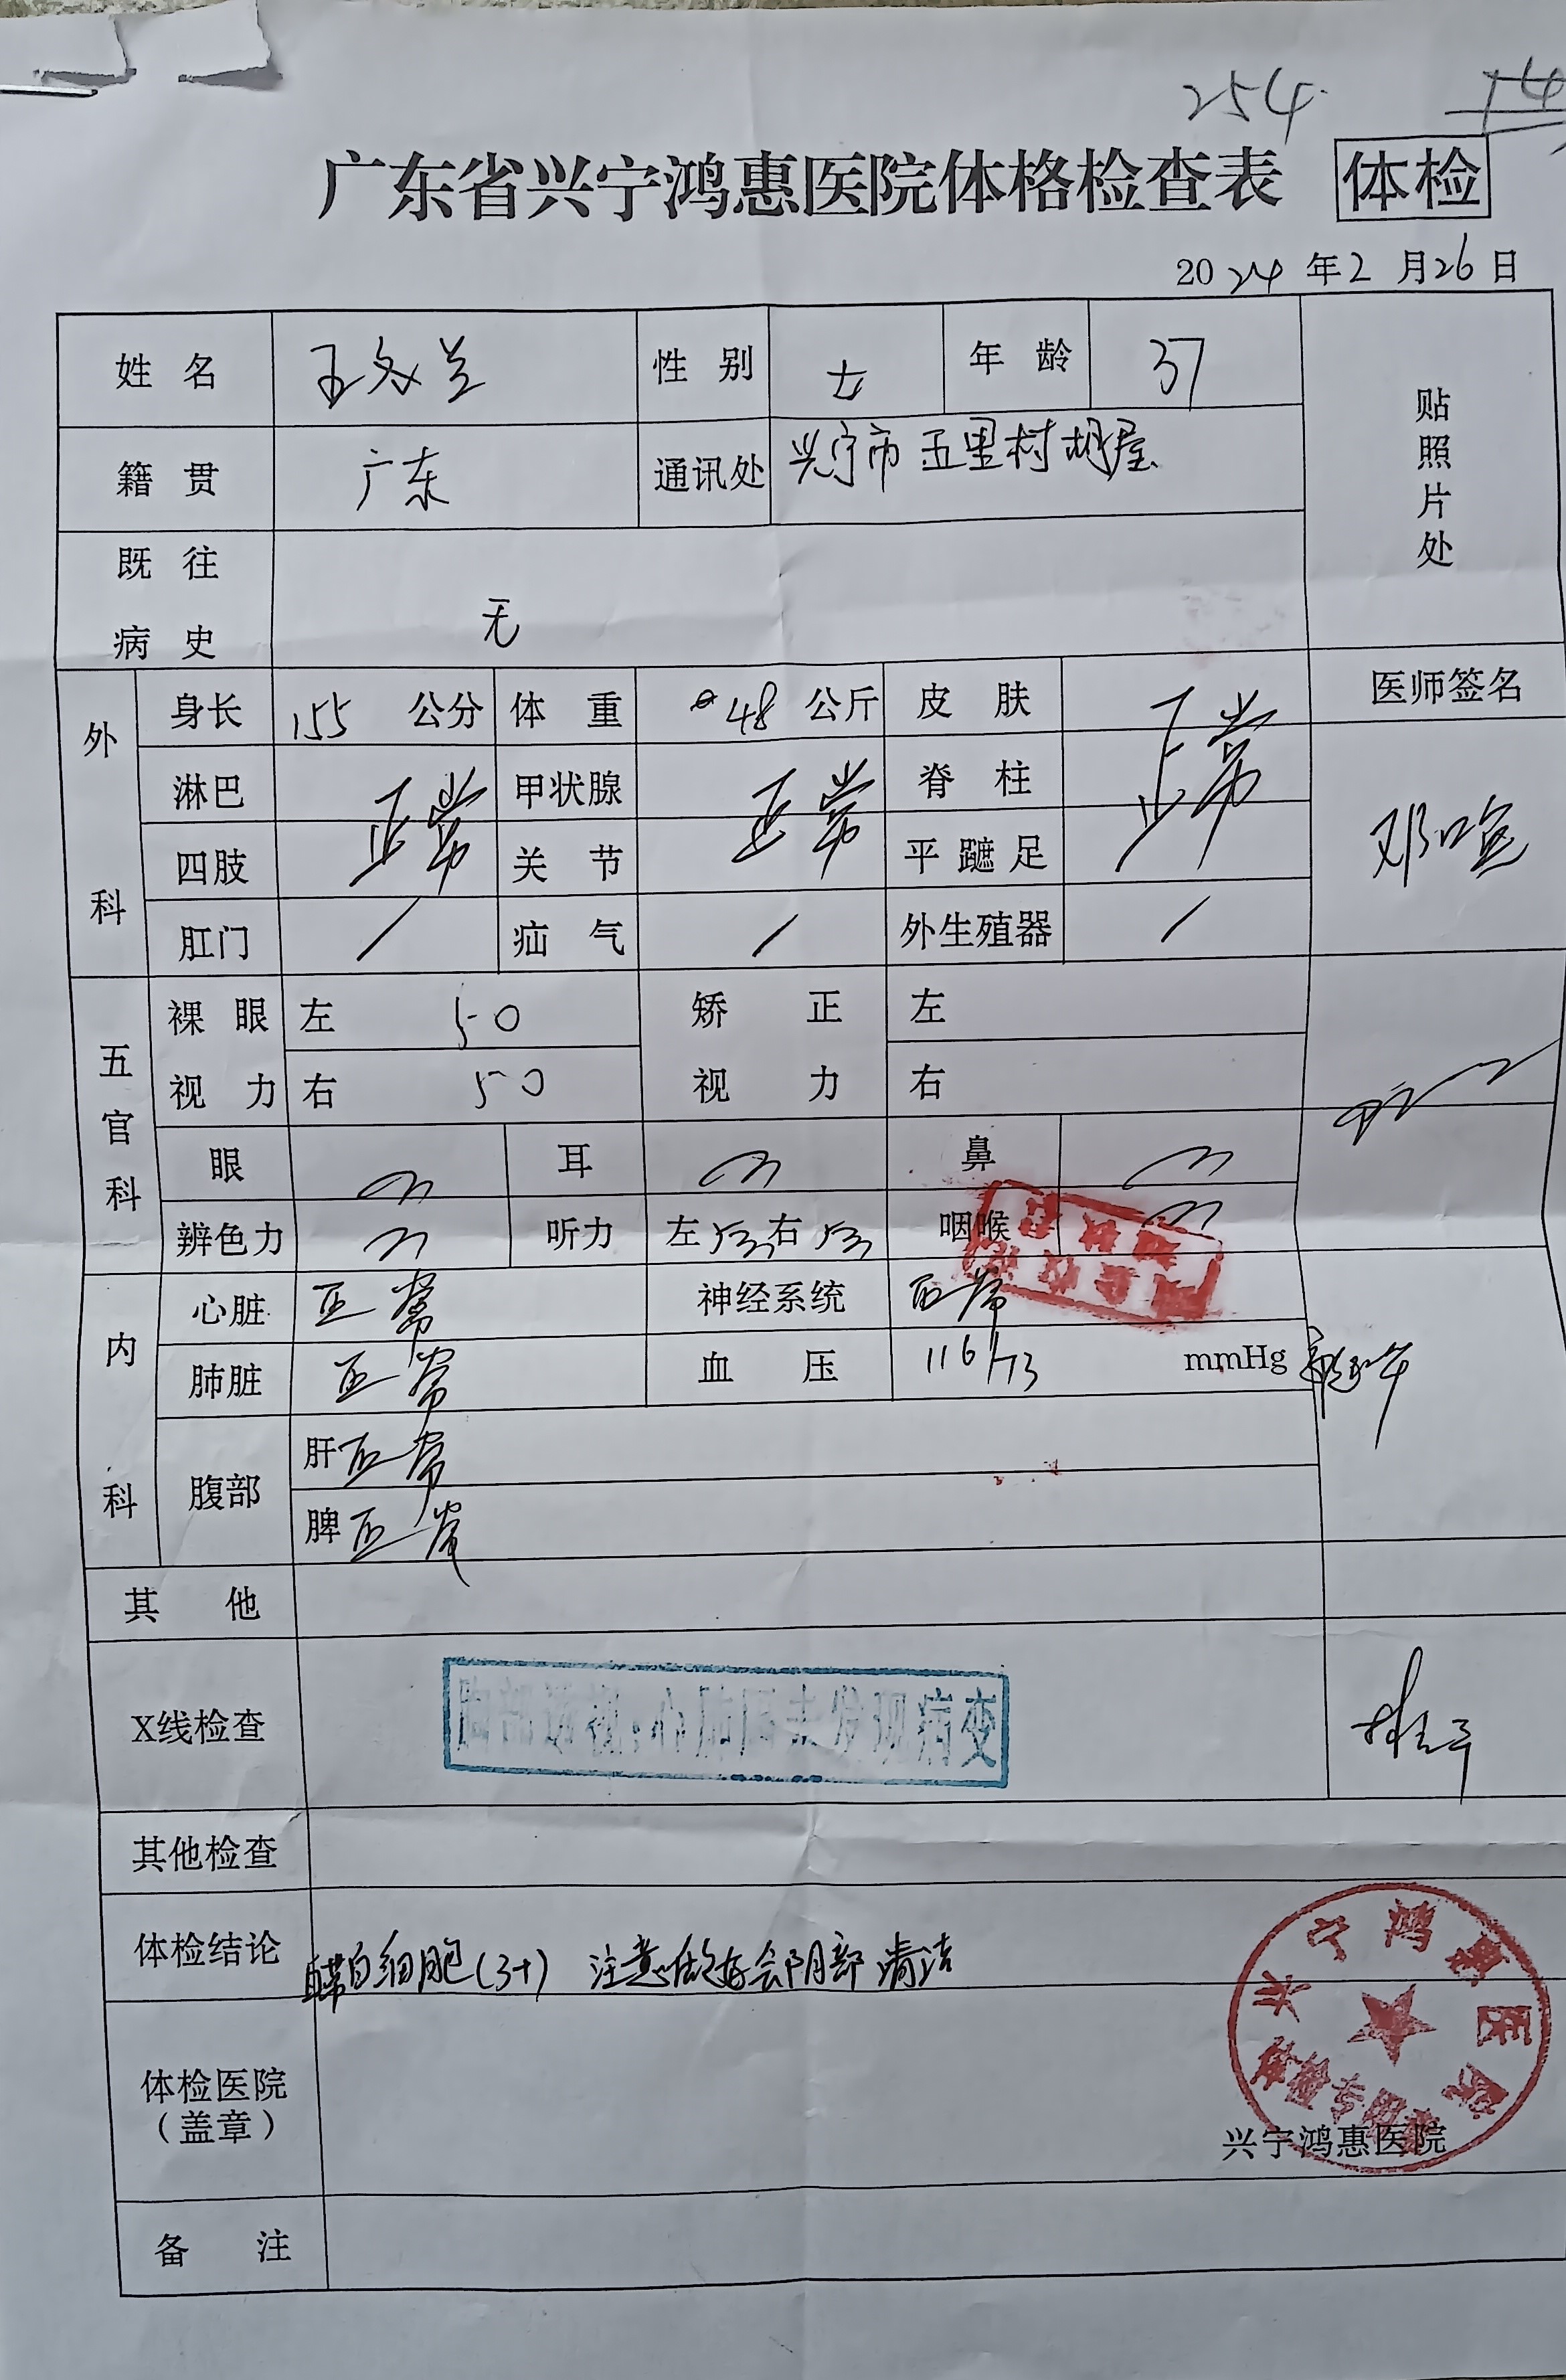 254 14
广东省兴宁鸿惠医院体格检查表 体检
2024年2月26日
姓名 王文兰 性别 女 年龄 37 贴照片处
籍贯 广东 通讯处 兴宁市五里村胡屋
既往病史 无
外科 身长 155 公分 体重 48 公斤 皮肤 正常 医师签名
淋巴 正常 甲状腺 正常 脊柱 正常
四肢 关节 平蹠足
肛门 / 疝气 / 外生殖器 /
五官科 裸眼视力 左 5.0 矫正视力 左
右 5.0 右
眼 耳 鼻
辨色力 听力 左 右 咽喉
内科 心脏 正常 神经系统 正常
肺脏 正常 血压 116/73 mmHg
腹部 肝 正常
脾 正常
其他
X线检查 胸部透视:心肺未发现病变
其他检查
体检结论 白细胞(3+) 注意做好会阴部清洁
体检医院(盖章) 兴宁鸿惠医院
兴宁鸿惠医院
体检专用章
备注